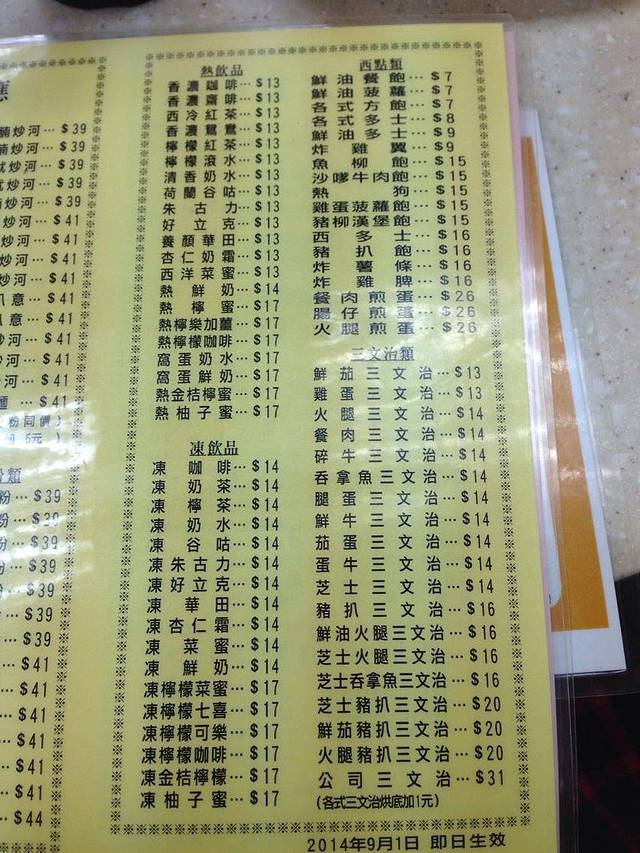 腩炒河…$39
炒河…$39
炒河…$39
炒河…$39
炒河…$39
炒河…$41
炒河…$41
炒河…$41
炒河…$41
意…$41
意…$41
河…$41
炒河…$41
河…$41
…$41
粉同價)
5元 )
類
粉…$39
…$39
…$39
…$39
…$39
…$39
…$41
…$41
…$41
…$41
…$41
…$41
…$44
熱飲品
香濃咖啡…$13
香濃齋啡…$13
西冷紅茶…$13
香濃鴛鴦…$13
檸檬紅茶…$13
檸檬滾水…$13
清香奶水…$13
荷蘭谷咕…$13
朱古力…$13
好立克…$13
養顏華田…$13
杏仁奶霜…$13
西洋菜蜜…$13
熱鮮奶…$14
熱檸蜜…$17
熱檸樂加薑…$17
熱檸檬咖啡…$17
窩蛋奶水…$17
窩蛋鮮奶…$17
熱金桔檸蜜…$17
熱柚子蜜…$17
凍飲品
凍咖啡…$14
凍奶茶…$14
凍檸茶…$14
凍奶水…$14
凍谷咕…$14
凍朱古力…$14
凍好立克…$14
凍華田…$14
凍杏仁霜…$14
凍菜蜜…$14
凍鮮奶…$14
凍檸檬菜蜜…$17
凍檸檬七喜…$17
凍檸檬可樂…$17
凍檸檬咖啡…$17
凍金桔檸檬…$17
凍柚子蜜…$17
西點類
鮮油餐飽…$7
鮮油菠蘿…$7
各式方飽…$7
各式多士…$8
鮮油多士…$9
炸雞翼…$9
魚柳飽…$15
沙嗲牛肉飽…$15
熱狗…$15
雞蛋菠蘿飽…$15
豬柳漢堡飽…$15
西多士…$16
豬扒飽…$16
炸薯條…$16
炸雞脾…$16
餐肉煎蛋…$26
腸仔煎蛋…$26
火腿煎蛋…$26
三文治類
鮮茄三文治…$13
雞蛋三文治…$13
火腿三文治…$14
餐肉三文治…$14
碎牛三文治…$14
吞拿魚三文治…$14
腿蛋三文治…$14
鮮牛三文治…$14
茄蛋三文治…$14
蛋牛三文治…$14
芝士三文治…$14
豬扒三文治…$16
鮮油火腿三文治…$16
芝士火腿三文治…$16
芝士吞拿魚三文治…$16
芝士豬扒三文治…$20
鮮茄豬扒三文治…$20
火腿豬扒三文治…$20
公司三文治…$31
(各式三文治烘底加1元)
2014年9月1日 即日生效